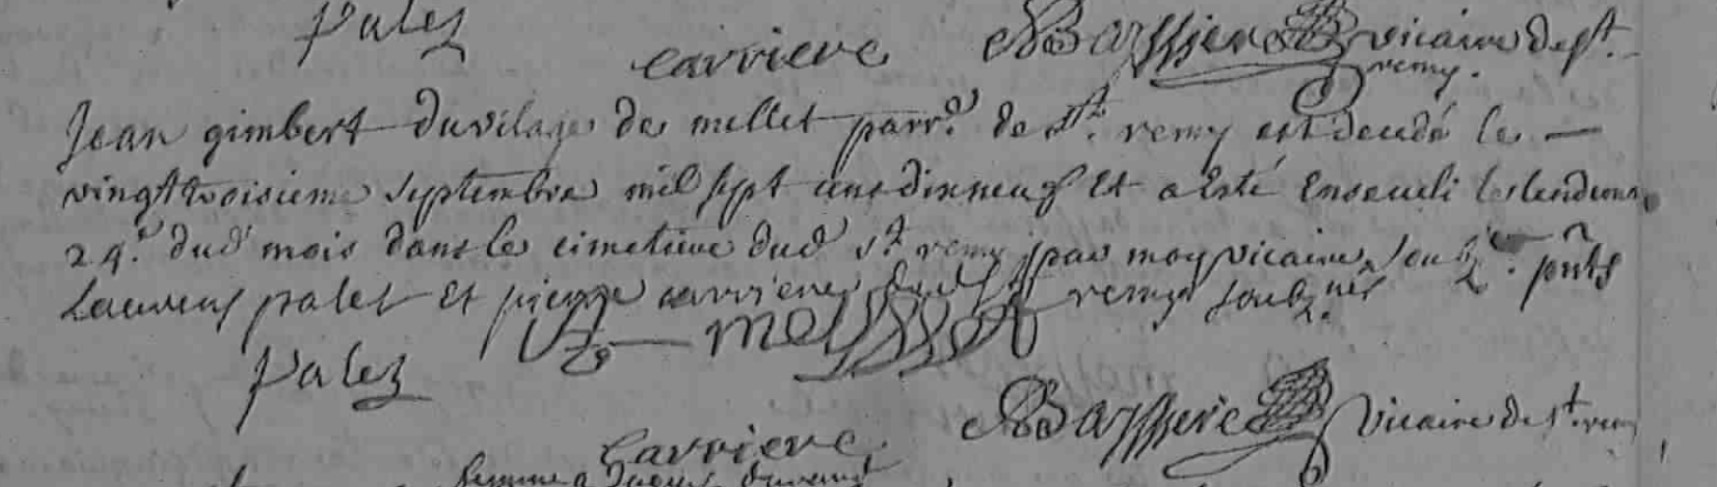 Palez
carriere Barssier vicaire de st.
remy.
Jean gimbert du vilage de mellet parr.e de st. remy est decedé le —
vingt troisieme septembre mil sept cens dixneuf Et a esté Enseueli le lendem.
24.e dud mois dans le cimetiere dud st remy par moy vicaire soubz.ne pnts
Laurens palet Et pierre carriere dud st remy soubz.nés
Palez
Barssier vicaire de st. remy
carriere
femme a